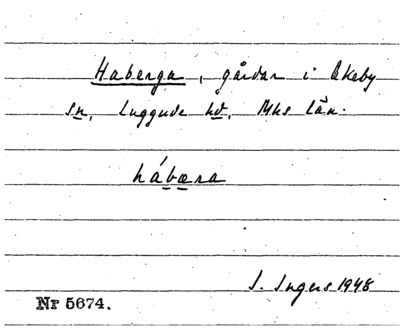 Haberga, gårdar i Ekeby
sn, Luggude hd, Mhs län.
hábæra
I. Ingers 1948
Nr 5674.